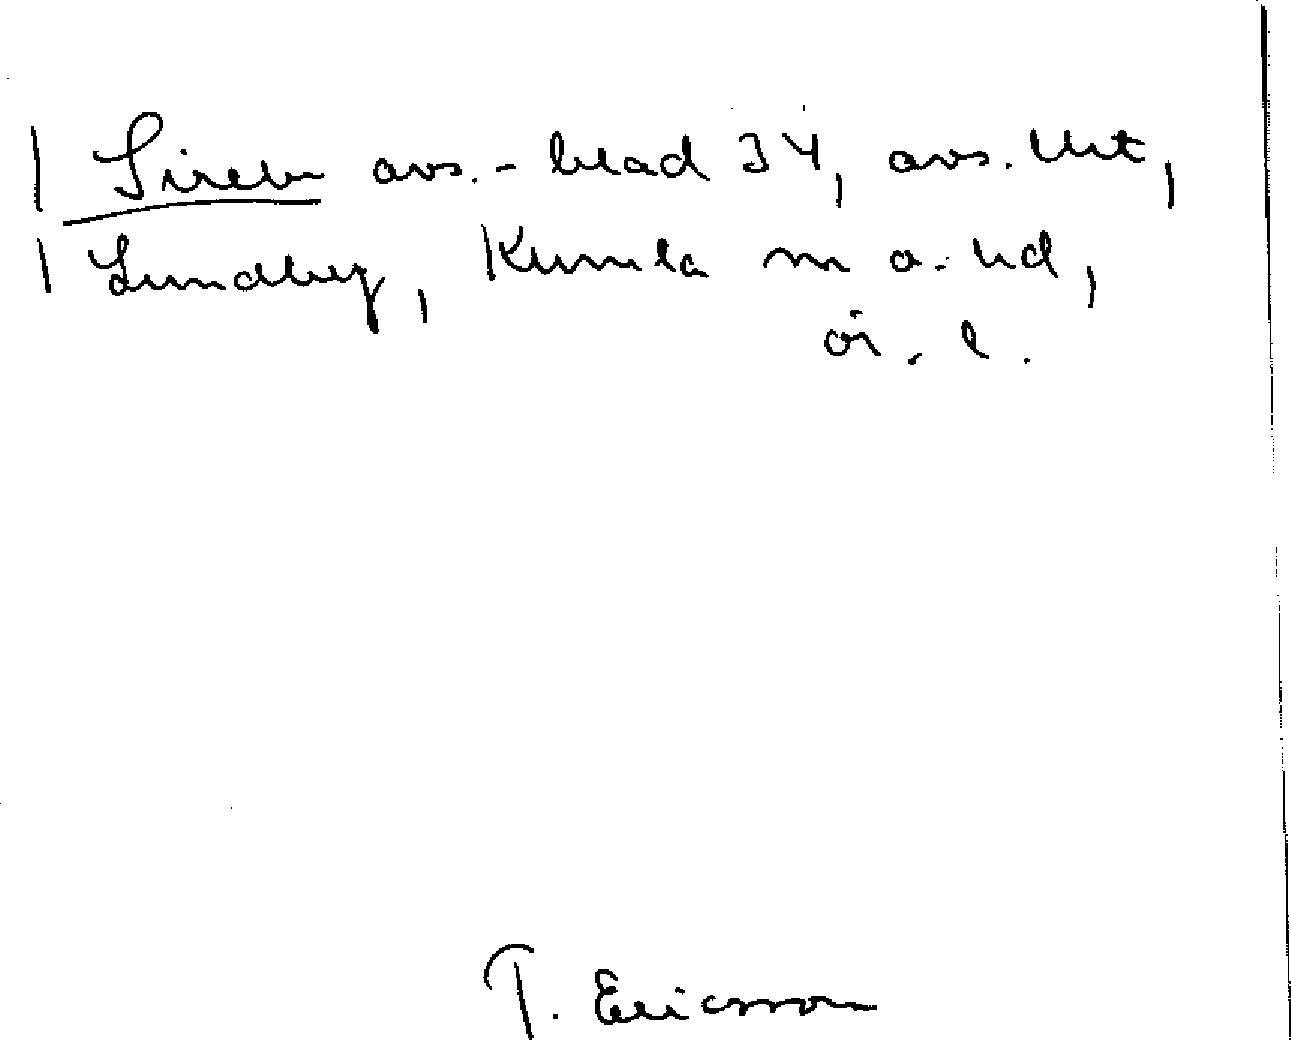 Siréen avs.-blad 34, avs. Urt,
Lundberg, Kumla m o. hd,
ör. l.
T. Ericsson